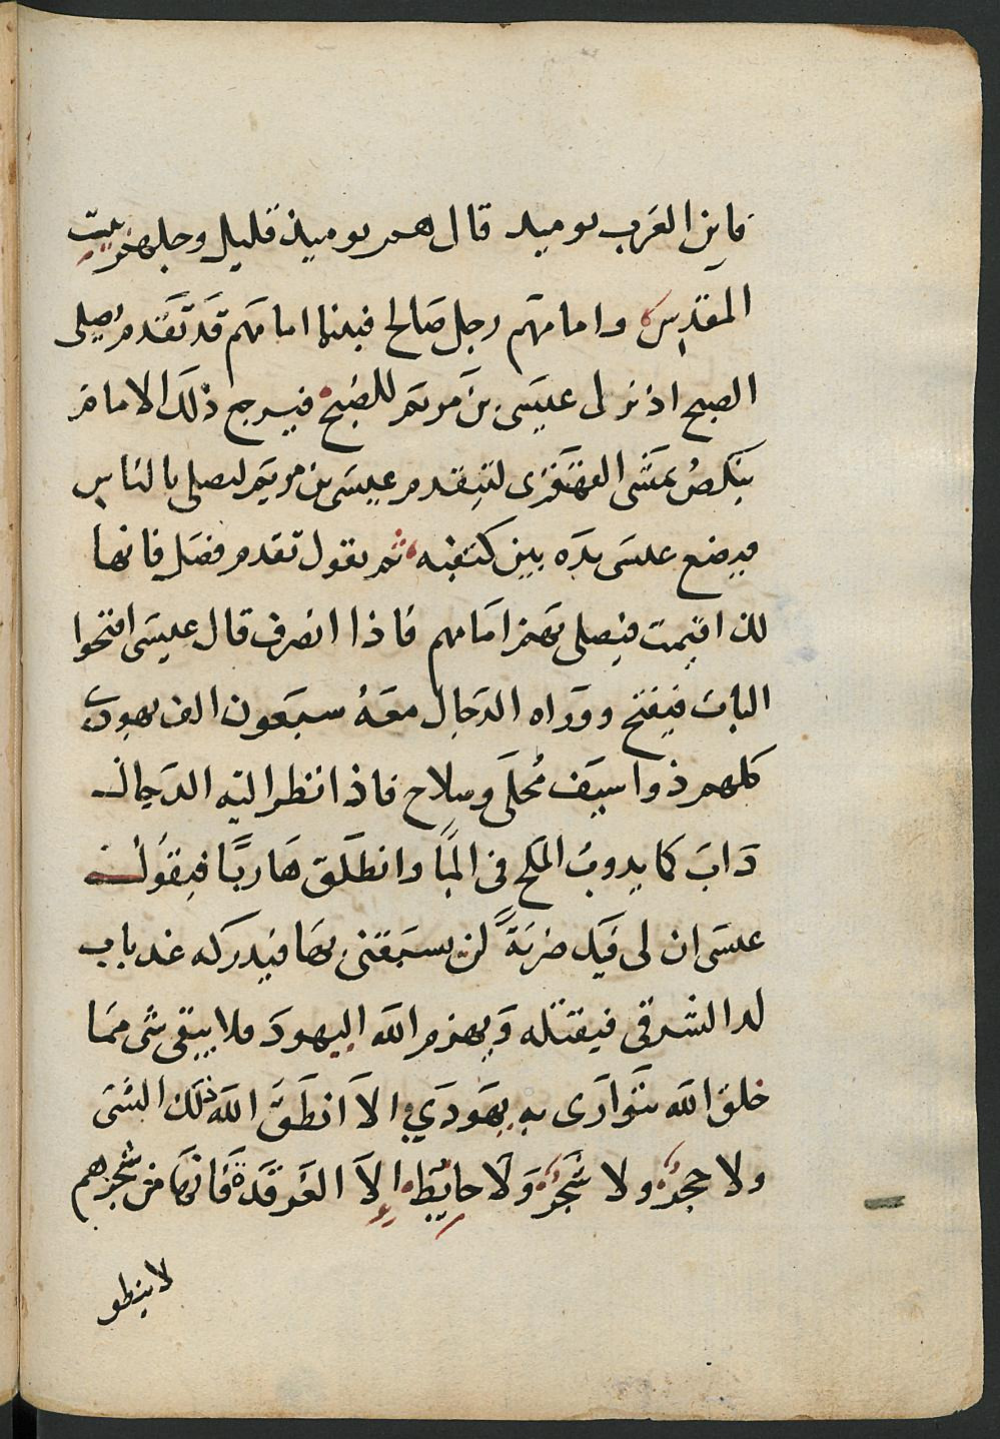 فاين العرب يوميد قال هم يوميذ قليل وجلهم ببيت
المقدس وامامهم رجل صالح فبينما امامهم قد تقدم يصلى
الصبح اذ نزل عيسى بن مريم للصبح فيرجع ذلك الامام
ينكص يمشى القهقرى ليتقدم عيسى بن مريم ليصلى بالناس
فيضع عيسى يده بين كتفيه ثم يقول تقدم فصل فانها
لك اقيمت فيصلى بهم امامهم فاذا انصرف قال عيسى افتحوا
الباب فيفتح ووراه الدجال معه سبعون الف يهودى
كلهم ذوا سيف محلى وسلاح فاذا نظر اليه الدجال
داب كما يدوب الملح فى الما وانطلق هاربا فيقول
عيسى ان لى فيك ضربة لن تسبقنى بها فيدركه عند باب
لد الشرقى فيقتله ويهزم الله اليهود فلا يبقى شى مما
خلق الله يتوارى به يهودي الا انطق الله ذلك الشى
ولا حجر ولا شجر ولا حايط الا الغرقدة فانها من شجرهم
لا ينطق